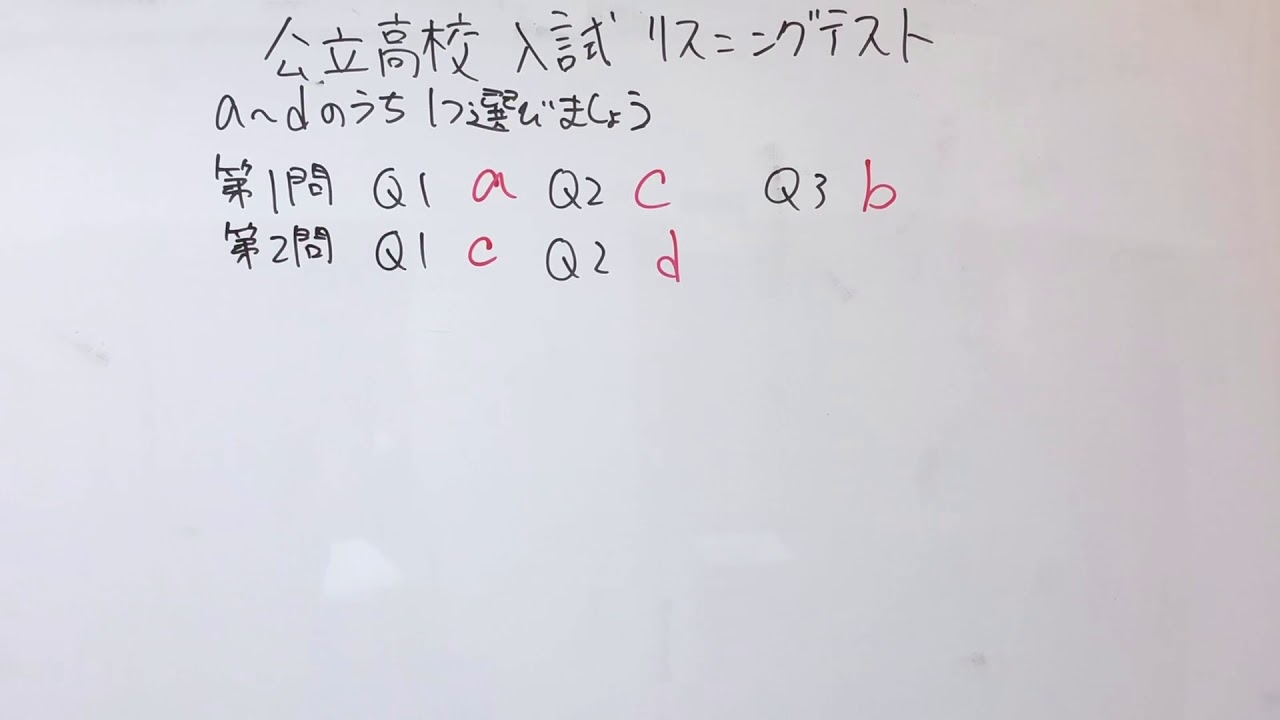 公立高校 入試 リスニングテスト
a～dのうち1つ選びましょう
第1問 Q1 a Q2 c Q3 b
第2問 Q1 c Q2 d